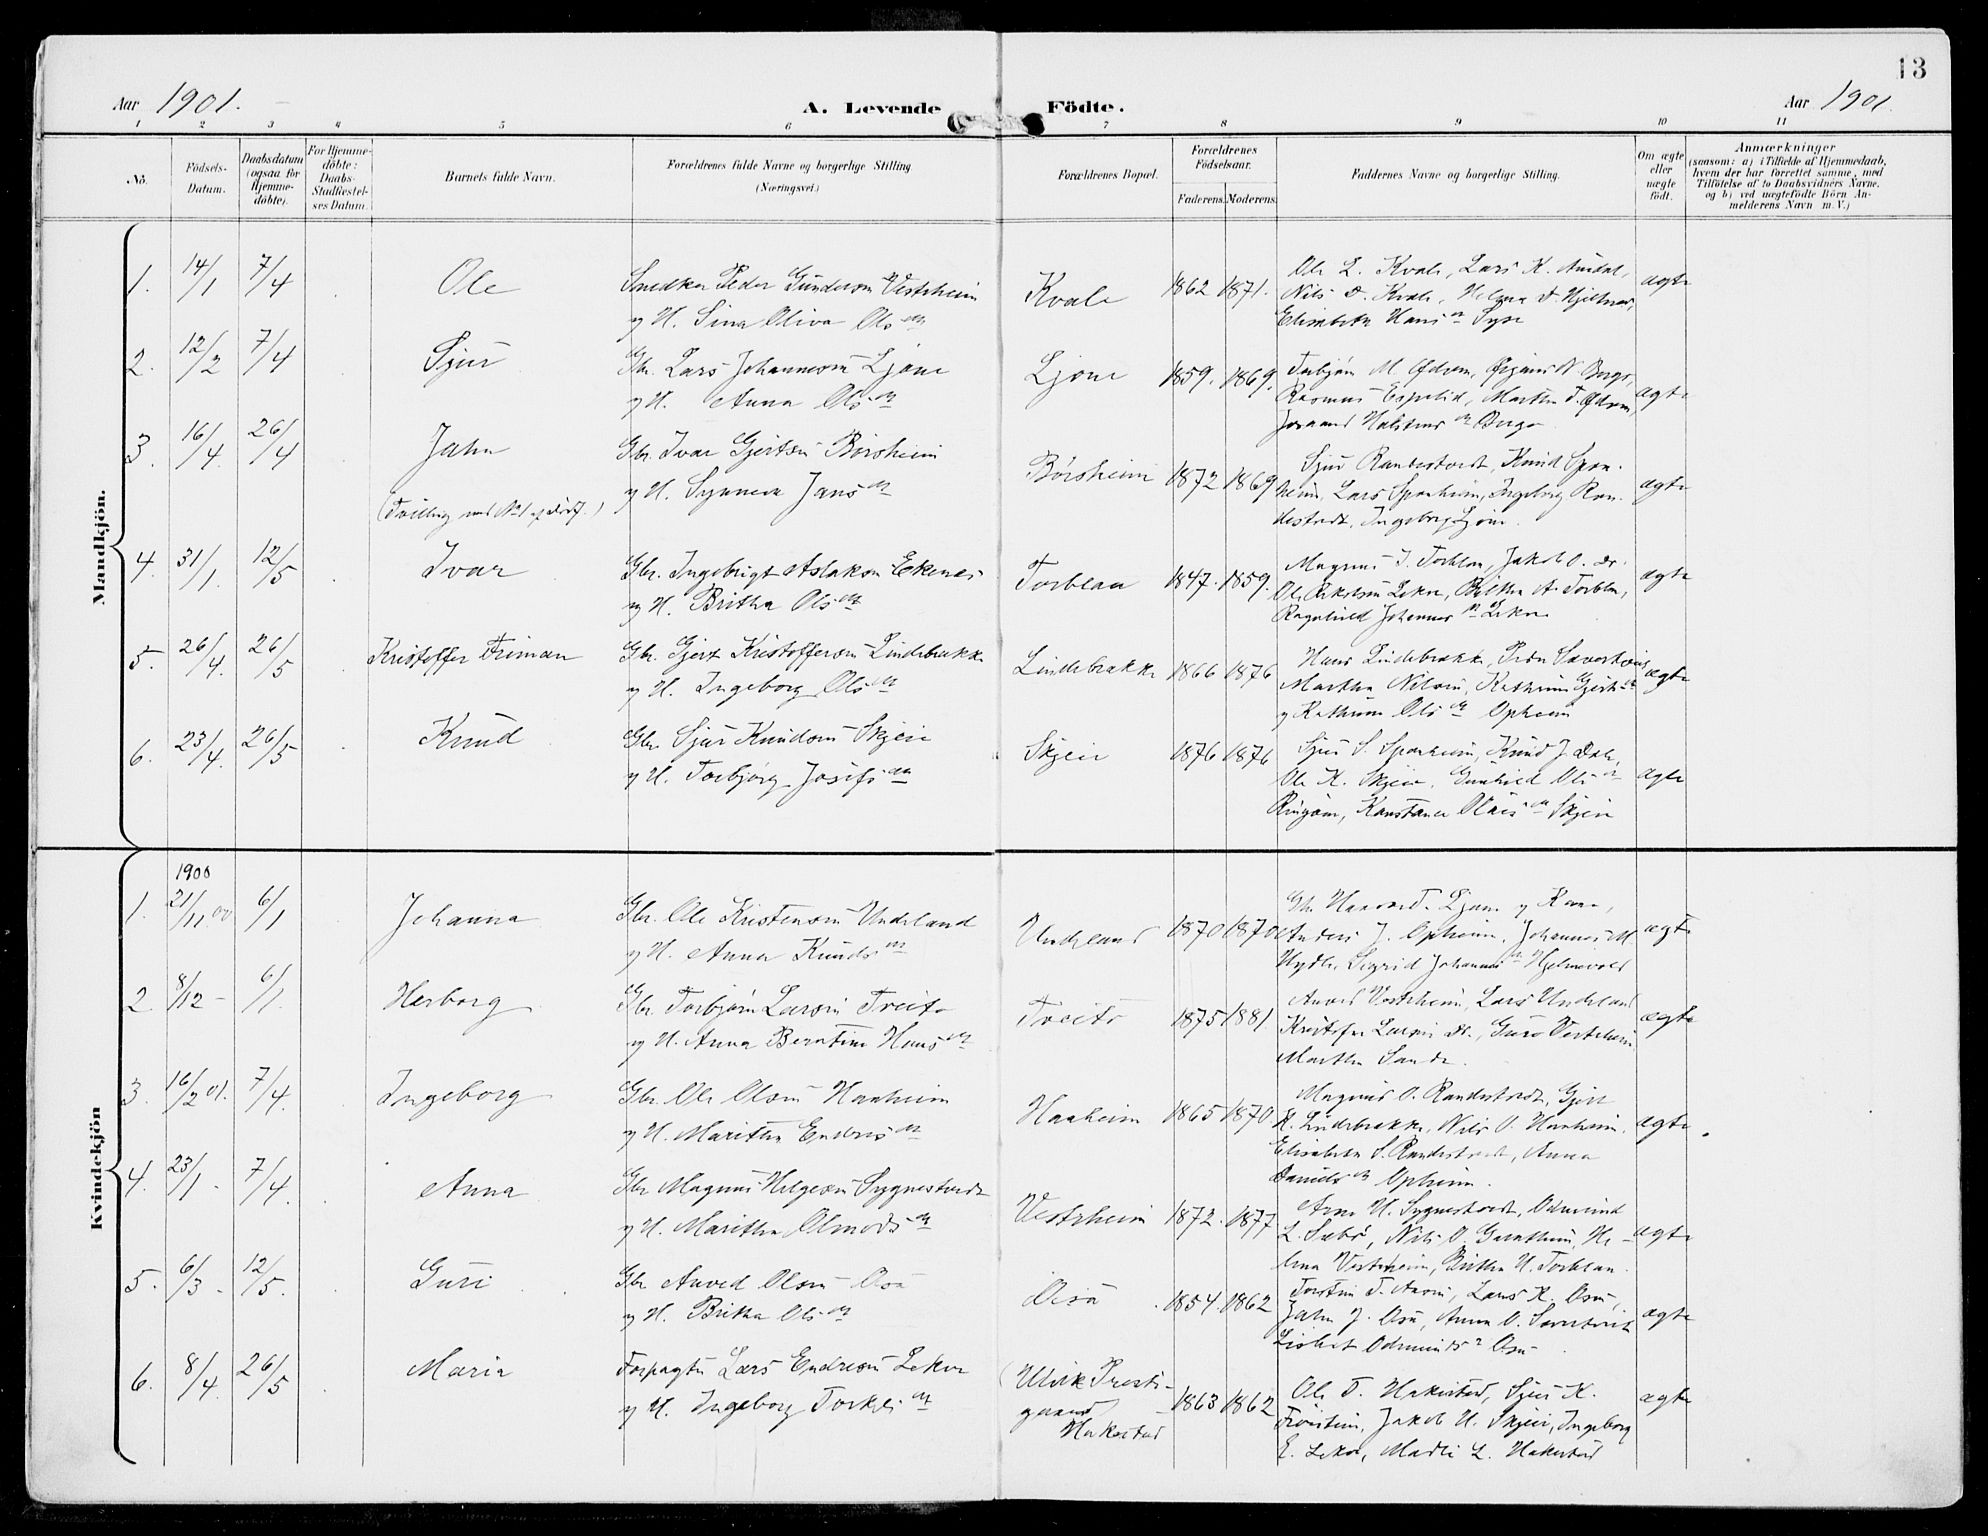 13
Aar 1901.
A. Levende Födte.
Aar 1901.
1 2 3 4 5 6 7 8 9 10 11
No.
Födsels-
Datum.
Daabsdatum
(ogsaa for
Hjemme-
döbte).
For Hjemme-
döbte:
Daabs-
Stadfæstel-
ses Datum.
Barnets fulde Navn.
Forældrenes fulde Navne og borgerlige Stilling.
(Næringsvei.)
Forældrenes Bopæl.
Forældrenes
Födselsaar.
Faderens. Moderens.
Faddernes Navne og borgerlige Stilling.
Om ægte
eller
uægte
födt.
Anmærkninger
(saasom: a) i Tilfælde af Hjemmedaab,
hvem der har forrettet samme, med
Tilföielse af to Daabsvidners Navne.
og b) ved uægtefödte Börn An-
melderens Navn m. V.)
Mandkjön.
1. 14/1 7/4 Ole
Snedker Peder Gunderson Vestrheim
og H. Sina Oliva Olsdtr
Kvale 1862 1871.
Ole L. Kvale, Lars K.
Nils D. Kvale, Helena D. Hjeltnes,
Elisabeth Hansdtr Syse
ægte
2. 12/2 7/4 Sjur
Gbr. Lars Johanneson Ljone
og H. Anna Olsdtr
Ljone 1859. 1869.
Torbjörn M.
Rasmus Espelid, Martha T.
ægte
3. 16/4 26/4 Jahn
(Tvilling med No 1 af dödf.)
Gbr. Ivar Gjertsen Börsheim
og H. Synneva Jansdtr
Börsheim 1872 1869
Sjur Randestvedt, Knud Span-
heim, Lars Spanheim, Ingeborg Ran-
destvedt, Ingeborg Ljone.
ægte
4. 31/1. 12/5 Ivar
Gbr. Ingebrigt Aslakson Ekenes
og H. Britha Olsdtr
Torblaa 1847. 1859.
Magnus I. Torblaa, Jakob O. do.
Ragnhild Johannesdtr Lekve
ægte
5. 26/4. 26/5 Kristoffer Friman
Gbr. Gjert Kristofferson Lindebrække
og H. Ingeborg Olsdtr
Lindebrække 1866 1876
Hans Lindebrække, Peder
Martha Nilsen, Kathrine Gjertsdtr
og Kathrine Olsdtr Opheim
ægte
6. 23/4. 26/5 Knud
Gbr. Sjur Knudson Skjeie
og H. Torbjörg Josefsdtr
Skjeie 1876 1876
Sjur S. Spanheim, Knud J. Dale,
Ole K. Skjeie, Gunhild Olsdtr
Ringöen, Konstance Olsdtr Skjeie
ægte
Kvindekjön
1900
1. 21/11 00 6/1 Johanna
Gbr. Ole Kristenson Undeland
og H. Anna Knudsdtr
Undeland 1870 1870
Gbr. Haavard T. Ljone og Kone,
Anders J. Opheim, Johannes M.
Sigrid Johannesdtr Hjelmevold
ægte
2 8/12 - 6/1. Herborg
Gbr. Torbjörn Larsen Tveito
og H. Anna Berntine Hansdtr
Tveito 1875 1881.
Anved Vestrheim, Lars Undeland
Kristofer Larsen do., Guro Vestrheim
Martha Sande.
ægte
3. 16/2 01. 7/4. Ingeborg
Gbr. Ole Olson Haaheim
og H. Maritha Endresdtr
Haaheim 1865 1870
Magnus O. Randestvedt, Gjert
K. Lindebrække, Nils O. Haaheim,
Elisabeth S. Randestvedt, Anna
Danielsdtr Opheim.
ægte.
4. 23/1 - 7/4. Anna
Gbr Magnus Helgeson Sygnestvedt
og H. Maritha Olmodsdtr
Vestrheim 1872. 1877
Arne H. Sygnestvedt, Odmund
L. Sæbö, Nils O. Granheim, He-
lena Vestrheim, Britha H. Torblaa.
ægte
5. 6/3 - 12/5. Guri
Gbr Anved Olson Osa
og H. Britha Olsdtr
Osa 1854. 1862
Torstein T. Aasen, Lars K. Osa,
Jahn J. Osa, Anna O.
Lisbet Odmundsdtr Osa
ægte
6. 8/4. 26/5 Maria
Forpagter Lars Endreson Lekve
og H. Ingeborg Torkelsdtr
(Ulvik Presti-
gaard)
Hakestad
1863 1862
Ole T. Hakestad, Sjur K.
Jakob H. Skjeie, Ingeborg
E. Lekve, Madli L. Hakestad
ægte